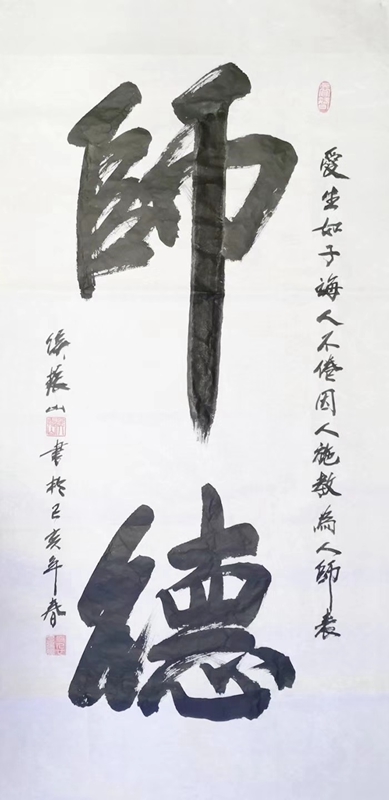 師德
愛生如子誨人不倦因人施教為人師表
侯振山
書於己亥年春